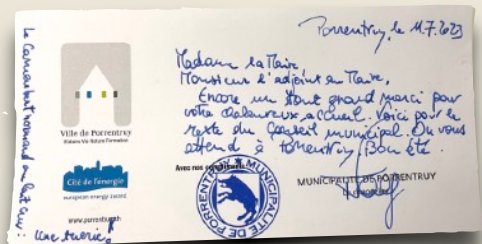 Porrentruy, le 11.7.2023
Madame la Maire,
Monsieur l'adjoint au Maire,
Encore un tout grand merci pour
votre chaleureux accueil. Voici pour le
reste du Conseil municipal. On vous
attend à Porrentruy! Bon été.
Ville de Porrentruy
Cité de l'énergie
european energy award
Avec nos compliments
MUNICIPALITÉ DE PORRENTRUY
MUNICIPALITÉ DE PORRENTRUY
Le Camembert normand au lait cru:
une tuerie!